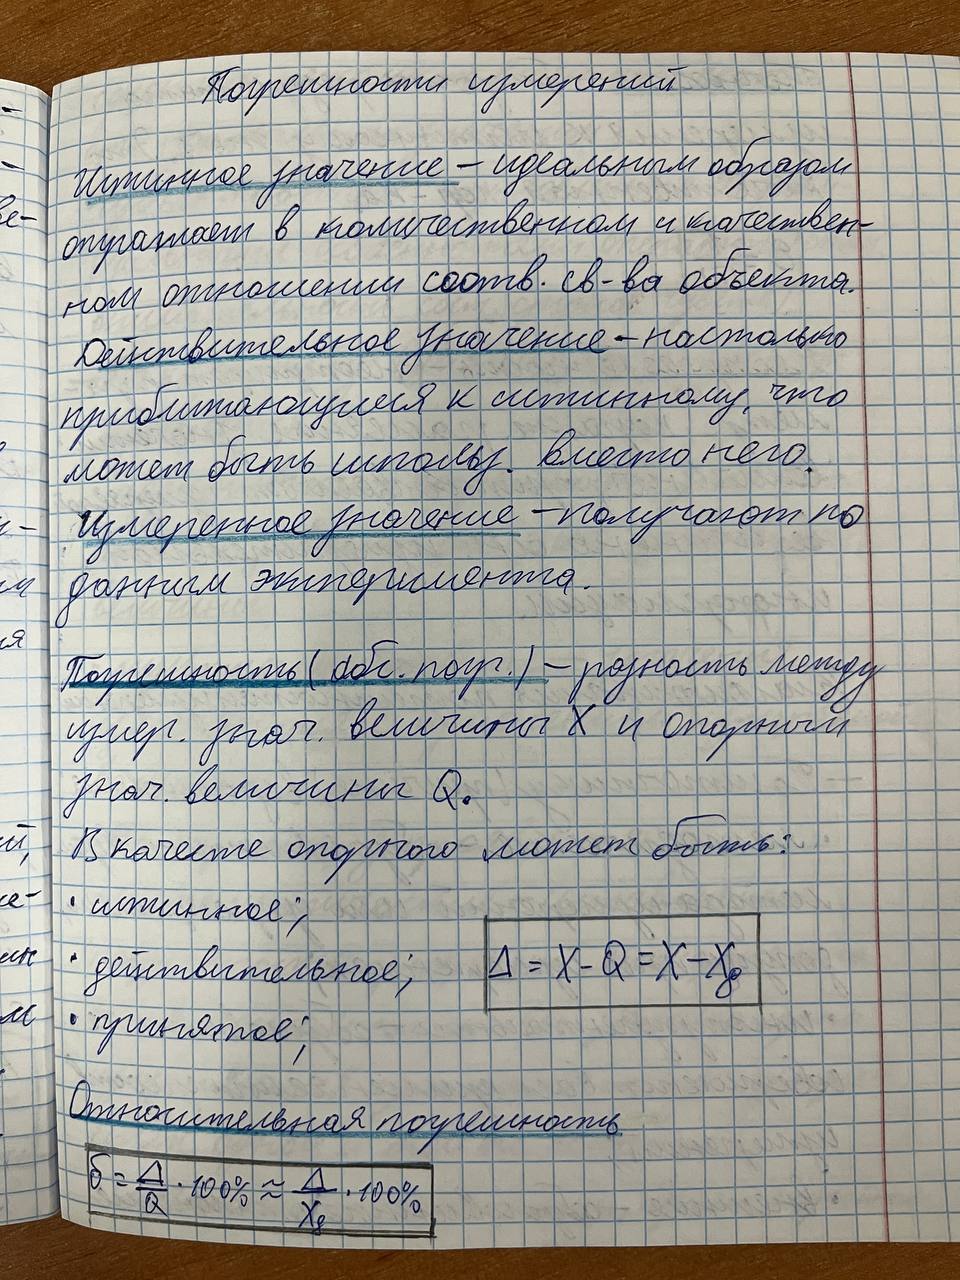 Погрешности измерений
Истинное значение – идеальным образом
отражает в количественном и качествен-
ном отношении соотв. св-ва объекта.
Действительное значение – настолько
приближающееся к истинному, что
может быть использ. вместо него.
Измеренное значение – получают по
данным эксперимента.
Погрешность (абс. погр.) – разность между
измер. знач. величины X и опорным
знач. величины Q.
В качесте опорного может быть:
• истинное;
• действительное;
Δ = X – Q = X – Xg
• принятое;
Относительная погрешность
δ = Δ/Q · 100% ≈ Δ/Xg · 100%